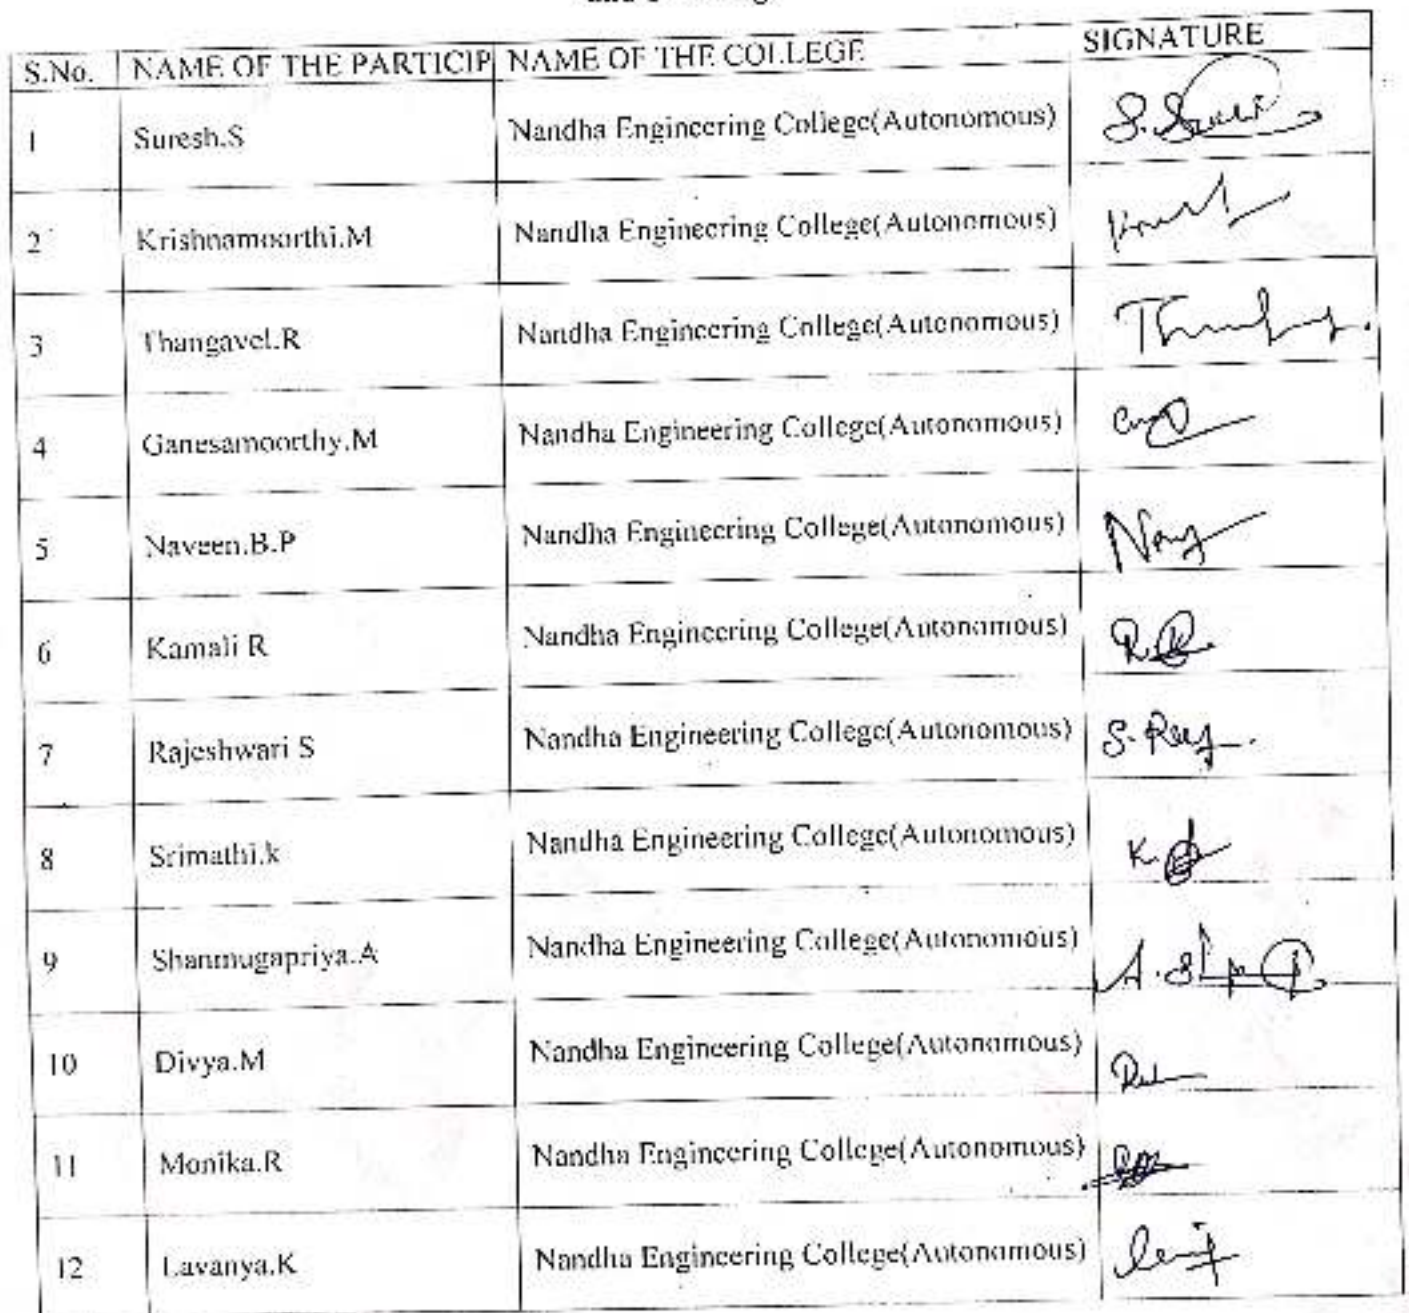 S.No. NAME OF THE PARTICIP NAME OF THE COLLEGE SIGNATURE
1 Suresh.S Nandha Engineering College(Autonomous)
2 Krishnamoorthi.M Nandha Engineering College(Autonomous)
3 Thangavel.R Nandha Engineering College(Autonomous)
4 Ganesamoorthy.M Nandha Engineering College(Autonomous)
5 Naveen.B.P Nandha Engineering College(Autonomous)
6 Kamali R Nandha Engineering College(Autonomous)
7 Rajeshwari S Nandha Engineering College(Autonomous)
8 Srimathi.k Nandha Engineering College(Autonomous)
9 Shanmugapriya.A Nandha Engineering College(Autonomous)
10 Divya.M Nandha Engineering College(Autonomous)
11 Monika.R Nandha Engineering College(Autonomous)
12 Lavanya.K Nandha Engineering College(Autonomous)